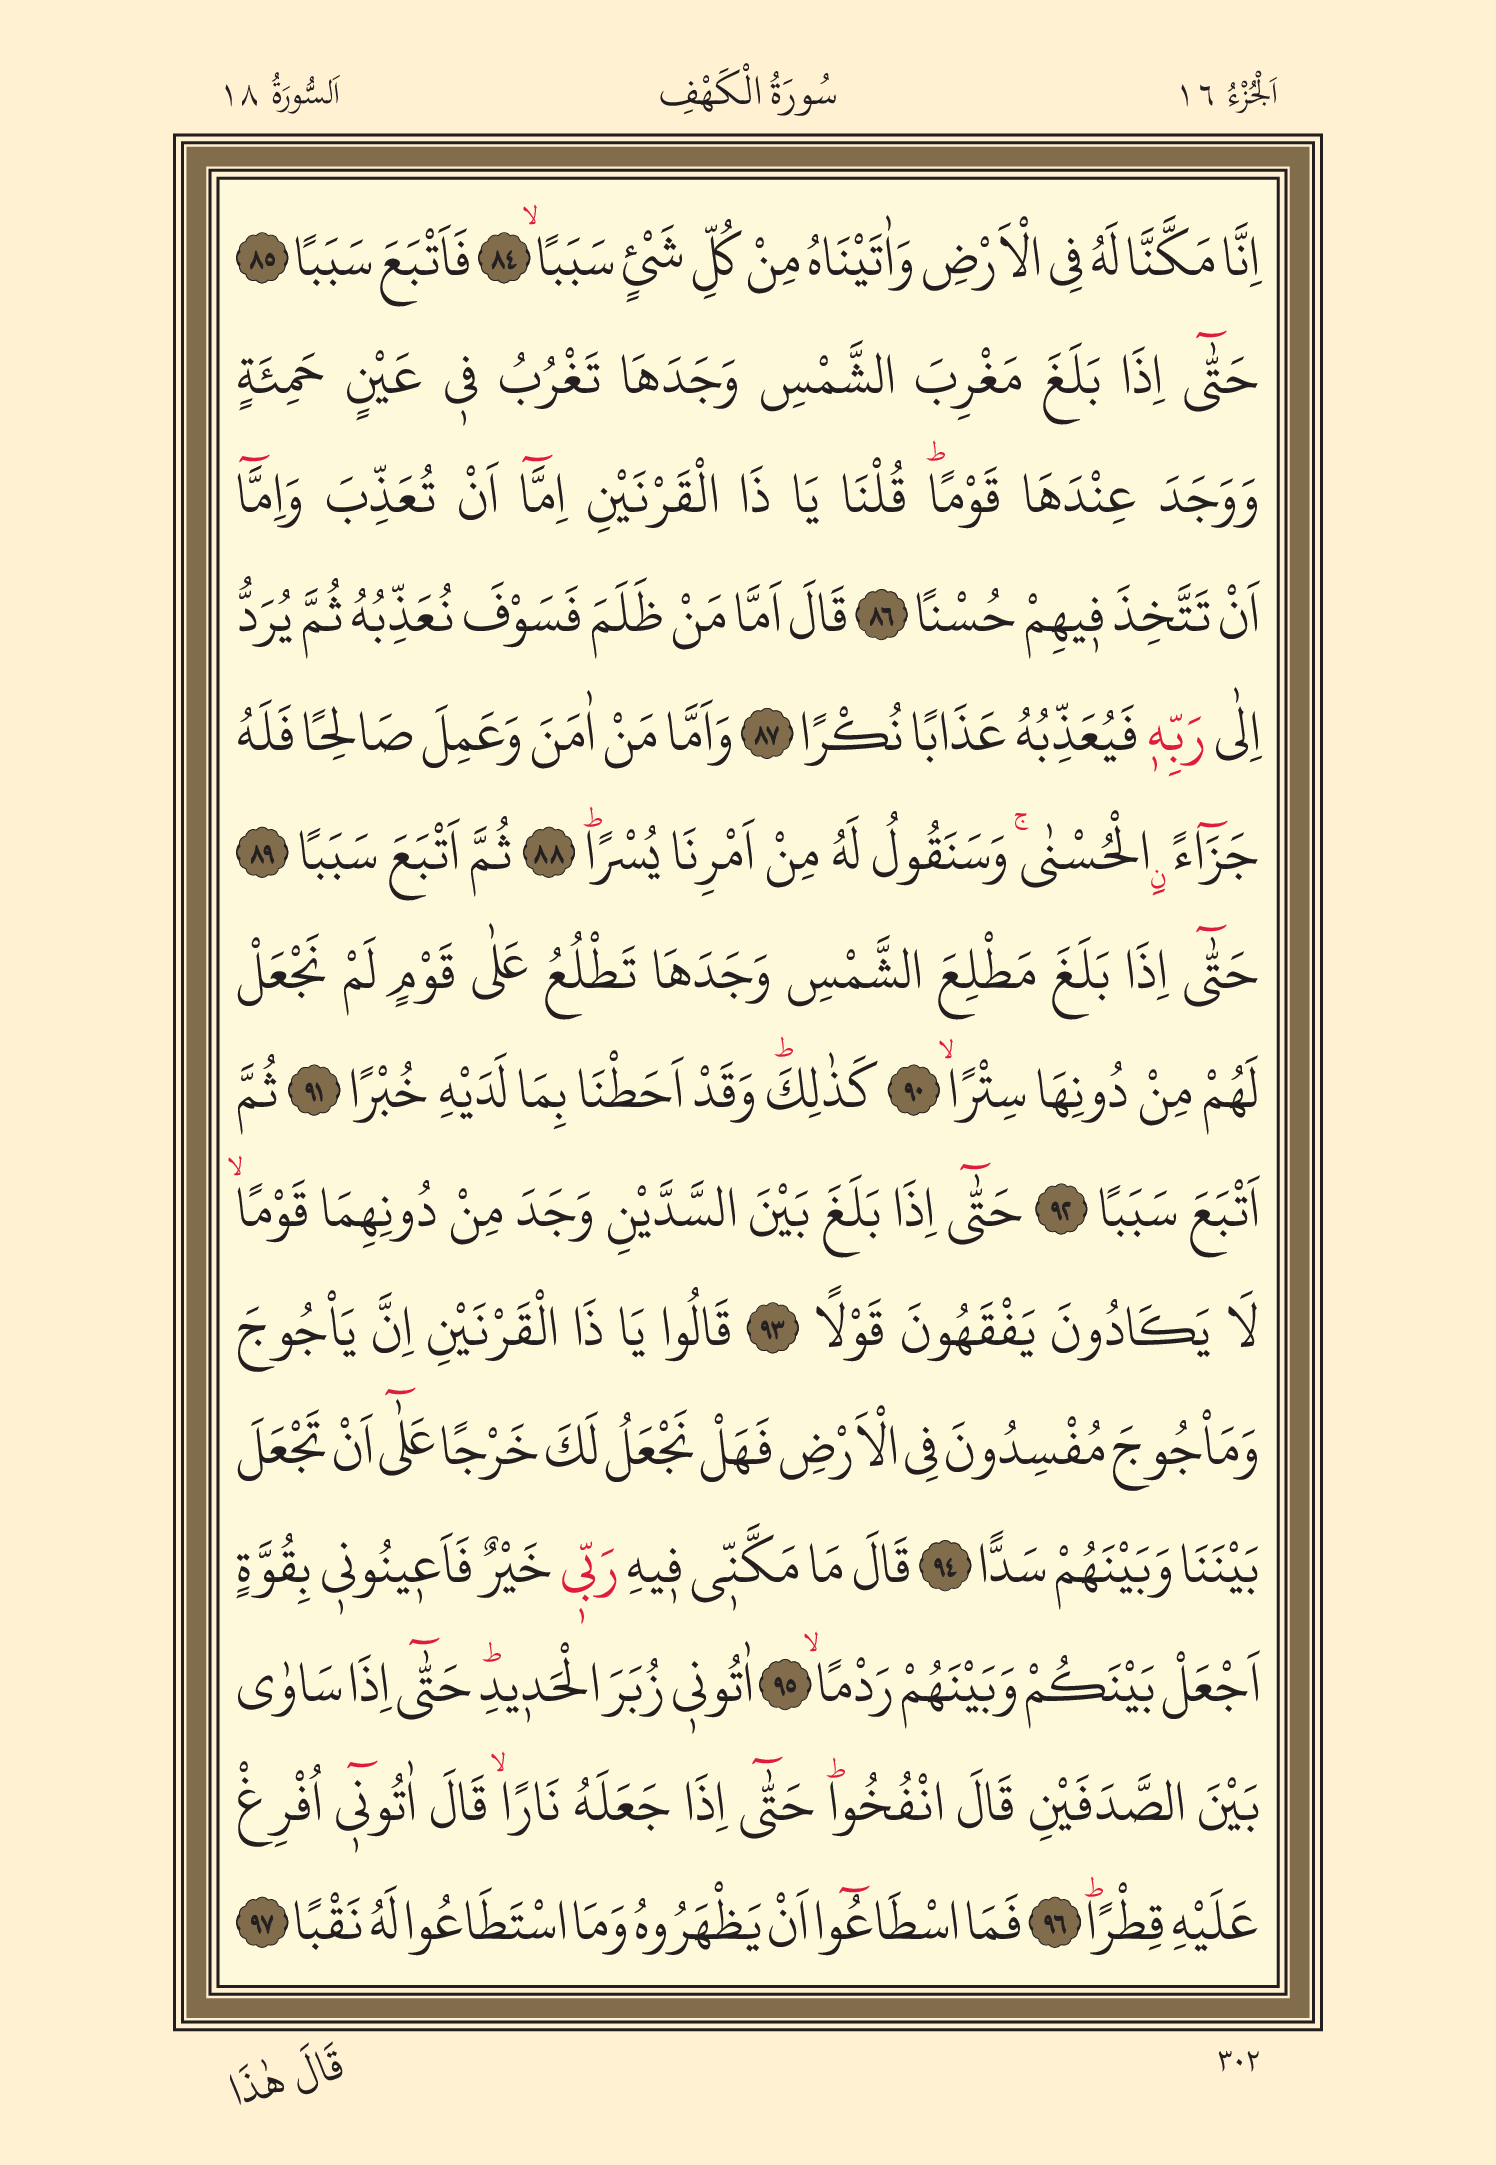 اَلْجُزْءُ ١٦ سُورَةُ الْكَهْفِ اَلسُّورَةُ ١٨
اِنَّا مَكَّنَّا لَهُ فِى الْاَرْضِ وَاٰتَيْنَاهُ مِنْ كُلِّ شَيْءٍ سَبَبًاۙ ﴿٨٤﴾ فَاَتْبَعَ سَبَبًا ﴿٨٥﴾
حَتّٰٓى اِذَا بَلَغَ مَغْرِبَ الشَّمْسِ وَجَدَهَا تَغْرُبُ ف۪ى عَيْنٍ حَمِئَةٍ
وَوَجَدَ عِنْدَهَا قَوْمًاۜ قُلْنَا يَا ذَا الْقَرْنَيْنِ اِمَّٓا اَنْ تُعَذِّبَ وَاِمَّٓا
اَنْ تَتَّخِذَ ف۪يهِمْ حُسْنًا ﴿٨٦﴾ قَالَ اَمَّا مَنْ ظَلَمَ فَسَوْفَ نُعَذِّبُهُ ثُمَّ يُرَدُّ
اِلٰى رَبِّه۪ فَيُعَذِّبُهُ عَذَابًا نُكْرًا ﴿٨٧﴾ وَاَمَّا مَنْ اٰمَنَ وَعَمِلَ صَالِحًا فَلَهُ
جَزَٓاءًۨ الْحُسْنٰىۚ وَسَنَقُولُ لَهُ مِنْ اَمْرِنَا يُسْرًاۜ ﴿٨٨﴾ ثُمَّ اَتْبَعَ سَبَبًا ﴿٨٩﴾
حَتّٰٓى اِذَا بَلَغَ مَطْلِعَ الشَّمْسِ وَجَدَهَا تَطْلُعُ عَلٰى قَوْمٍ لَمْ نَجْعَلْ
لَهُمْ مِنْ دُونِهَا سِتْرًاۙ ﴿٩٠﴾ كَذٰلِكَۜ وَقَدْ اَحَطْنَا بِمَا لَدَيْهِ خُبْرًا ﴿٩١﴾ ثُمَّ
اَتْبَعَ سَبَبًا ﴿٩٢﴾ حَتّٰٓى اِذَا بَلَغَ بَيْنَ السَّدَّيْنِ وَجَدَ مِنْ دُونِهِمَا قَوْمًاۙ
لَا يَكَادُونَ يَفْقَهُونَ قَوْلًا ﴿٩٣﴾ قَالُوا يَا ذَا الْقَرْنَيْنِ اِنَّ يَاْجُوجَ
وَمَاْجُوجَ مُفْسِدُونَ فِى الْاَرْضِ فَهَلْ نَجْعَلُ لَكَ خَرْجًا عَلٰٓى اَنْ تَجْعَلَ
بَيْنَنَا وَبَيْنَهُمْ سَدًّا ﴿٩٤﴾ قَالَ مَا مَكَّنّ۪ى ف۪يهِ رَبّ۪ى خَيْرٌ فَاَع۪ينُون۪ى بِقُوَّةٍ
اَجْعَلْ بَيْنَكُمْ وَبَيْنَهُمْ رَدْمًاۙ ﴿٩٥﴾ اٰتُون۪ى زُبَرَ الْحَد۪يدِۜ حَتّٰٓى اِذَا سَاوٰى
بَيْنَ الصَّدَفَيْنِ قَالَ انْفُخُواۜ حَتّٰٓى اِذَا جَعَلَهُ نَارًاۙ قَالَ اٰتُون۪ٓى اُفْرِغْ
عَلَيْهِ قِطْرًاۜ ﴿٩٦﴾ فَمَا اسْطَاعُٓوا اَنْ يَظْهَرُوهُ وَمَا اسْتَطَاعُوا لَهُ نَقْبًا ﴿٩٧﴾
٣٠٢ قَالَ هٰذَا